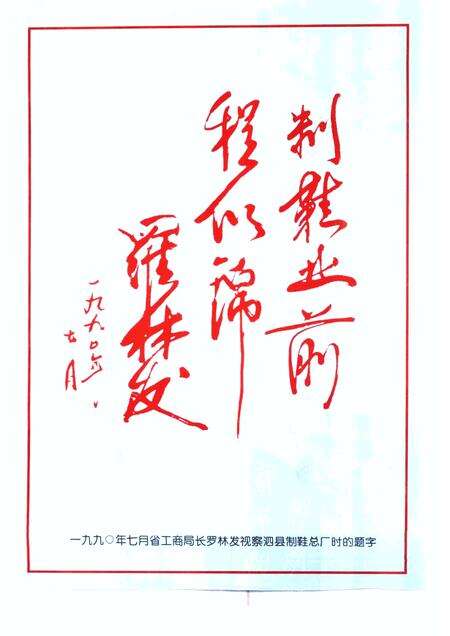 制鞋业前
程似锦
羅林发
一九九〇年
七月
一九九〇年七月省工商局长罗林发视察泗县制鞋总厂时的题字